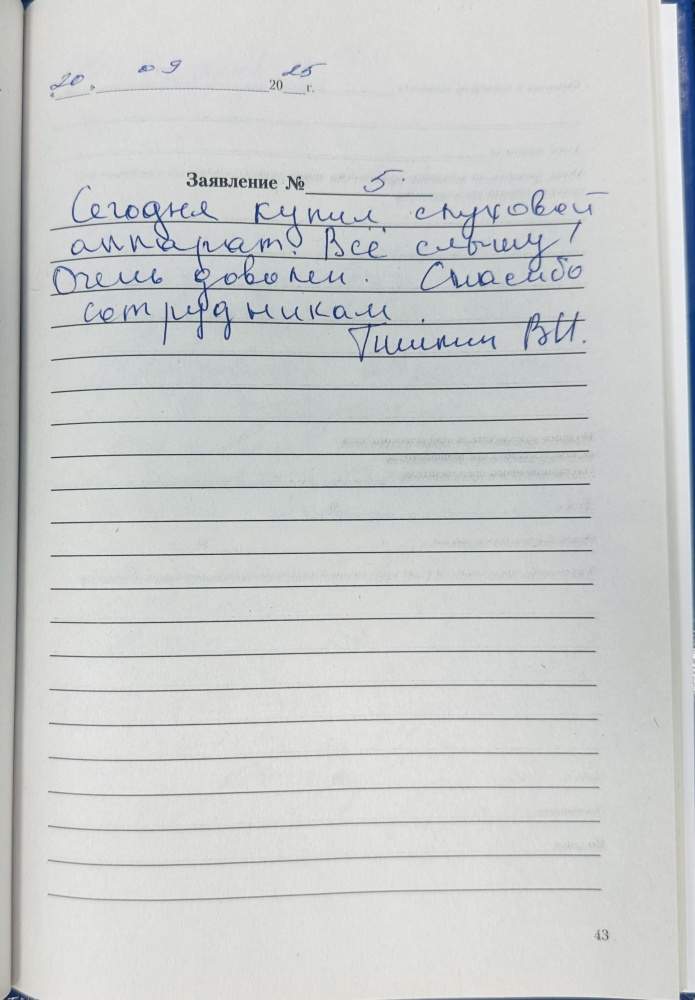 20. 09 2025 г.
Заявление № 5.
Сегодня купил слуховой
аппарат! Всё слышу!
Очень доволен. Спасибо
сотрудникам.
В.И.
43